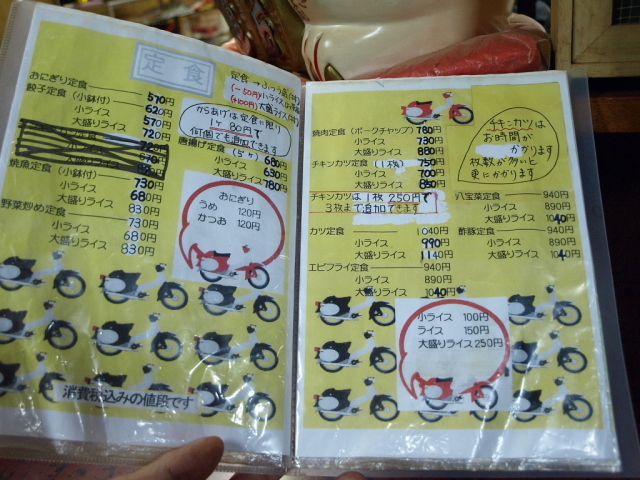 定食
定食→ふつう盛(
(-50円)小ライス
(+100円)大盛ライス
おにぎり定食 570円
餃子定食(小鉢付) 620円
小ライス 570円
大盛りライス 720円
からあげは定食に限り
1ヶ80円で
何個でも追加できます
唐揚げ定食(5ヶ) 680円
小ライス 630円
大盛りライス 780円
焼魚定食(小鉢付) 730円
小ライス 680円
大盛りライス 830円
野菜炒め定食 730円
小ライス 680円
大盛りライス 830円
おにぎり
うめ 120円
かつお 120円
消費税込みの値段です
焼肉定食(ポークチャップ) 780円
小ライス 730円
大盛りライス 880円
チキンカツ定食(1枚) 750円
小ライス 700円
大盛りライス 850円
チキンカツは1枚250円で
3枚まで追加できます
カツ定食 1040円
小ライス 990円
大盛りライス 1140円
エビフライ定食 940円
小ライス 890円
大盛りライス 1040円
チキンカツは
お時間が
かかります
枚数が多いと
更にかかります
八宝菜定食 940円
小ライス 890円
大盛りライス 1040円
酢豚定食 940円
小ライス 890円
大盛りライス 1040円
小ライス 100円
ライス 150円
大盛りライス 250円